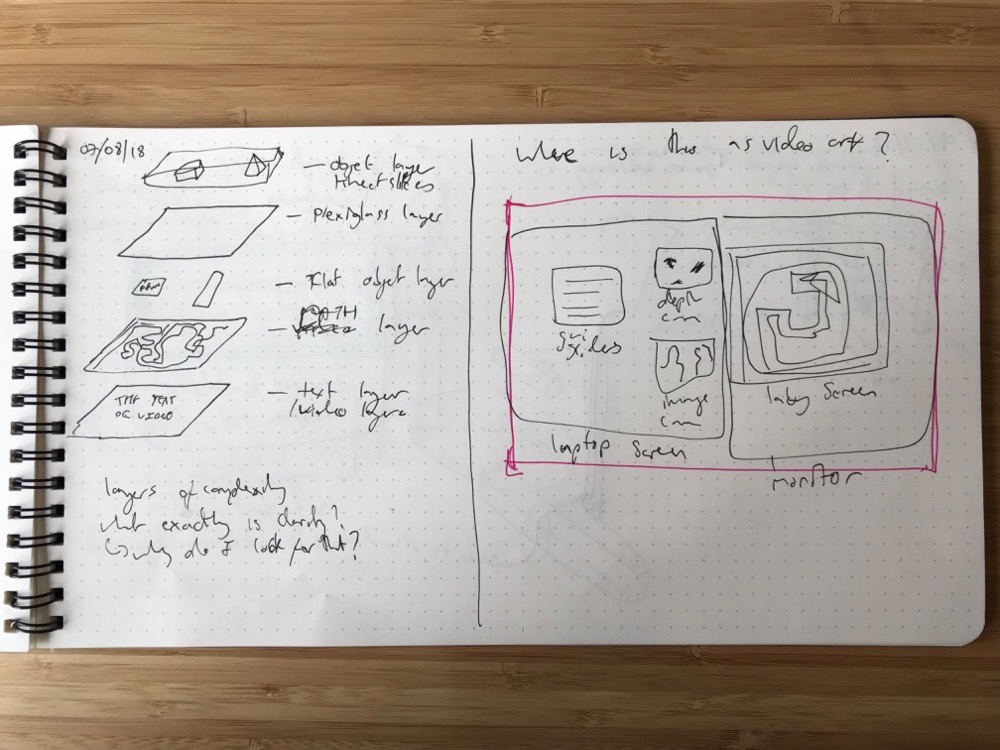 07/08/18
— object layer
kinect slices
— plexiglass layer
— flat object layer
— PATH layer
— text layer
/video layer
THE TEXT
OF VIDEO
layers of complexity
what exactly is clarity?
↳ why do I look for that?
where is this as video art?
guides
depth
cam
image
cam
laptop screen
screen
monitor